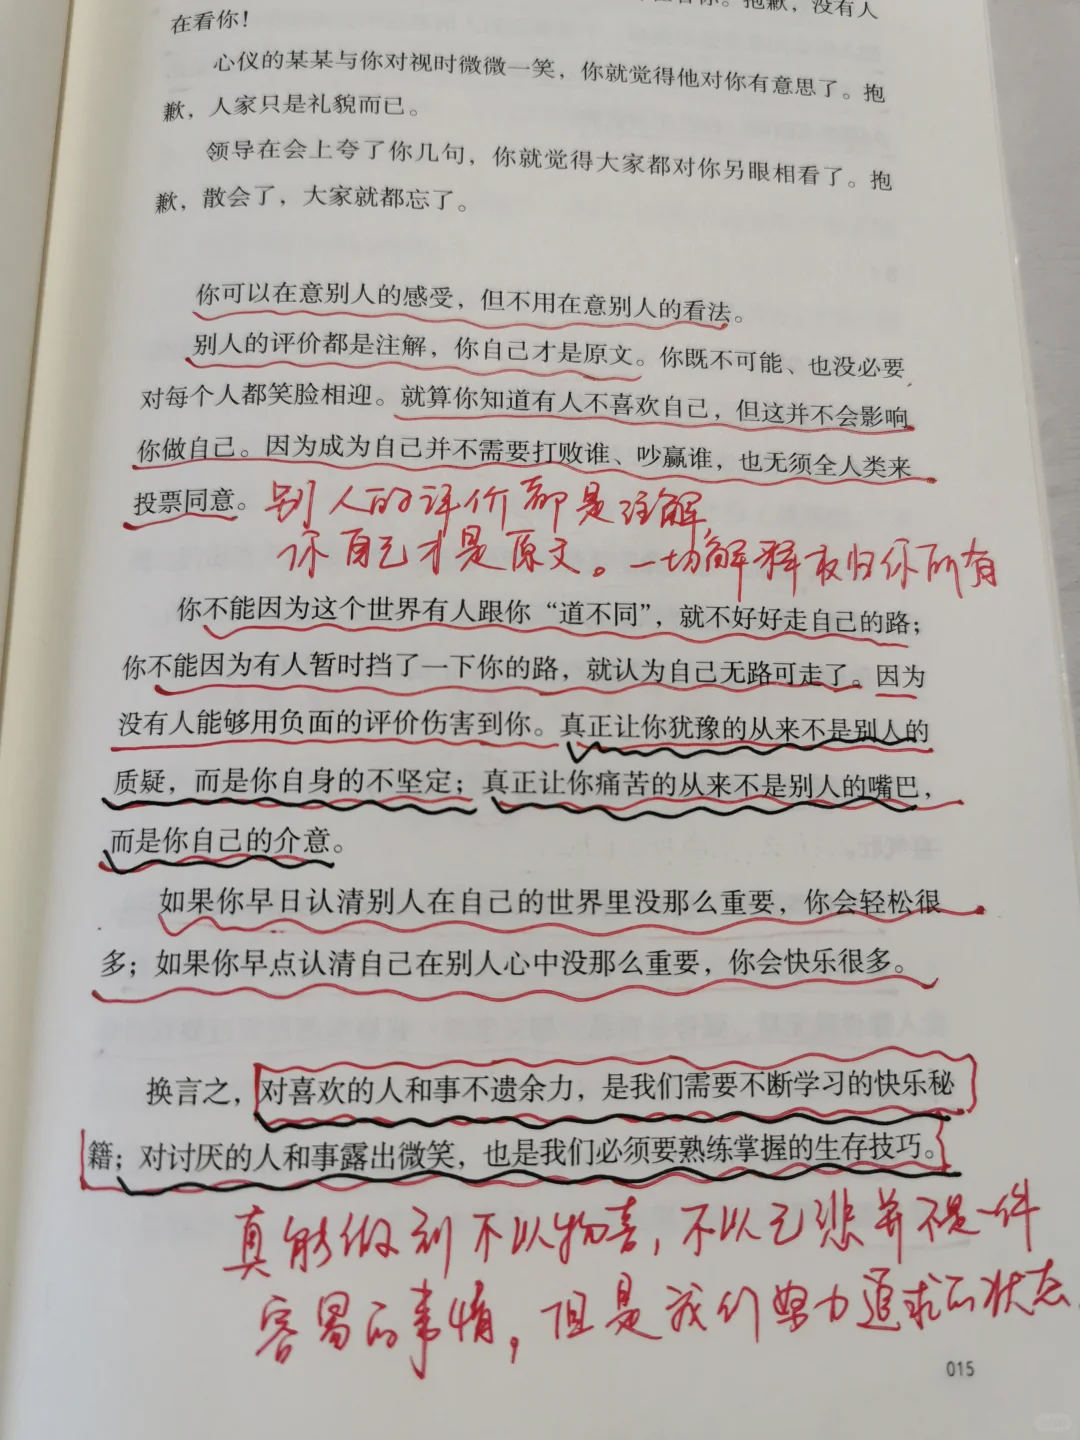 在看你。抱歉，没有人
在看你！
心仪的某某与你对视时微微一笑，你就觉得他对你有意思了。抱
歉，人家只是礼貌而已。
领导在会上夸了你几句，你就觉得大家都对你另眼相看了。抱
歉，散会了，大家就都忘了。
你可以在意别人的感受，但不用在意别人的看法。
别人的评价都是注解，你自己才是原文。你既不可能、也没必要
对每个人都笑脸相迎。就算你知道有人不喜欢自己，但这并不会影响
你做自己。因为成为自己并不需要打败谁、吵赢谁，也无须全人类来
投票同意。
别人的评价都是注解
你自己才是原文。一切解释权归你所有
你不能因为这个世界有人跟你“道不同”，就不好好走自己的路；
你不能因为有人暂时挡了一下你的路，就认为自己无路可走了。因为
没有人能够用负面的评价伤害到你。真正让你犹豫的从来不是别人的
质疑，而是你自身的不坚定；真正让你痛苦的从来不是别人的嘴巴，
而是你自己的介意。
如果你早日认清别人在自己的世界里没那么重要，你会轻松很
多；如果你早点认清自己在别人心中没那么重要，你会快乐很多。
换言之，对喜欢的人和事不遗余力，是我们需要不断学习的快乐秘
籍；对讨厌的人和事露出微笑，也是我们必须要熟练掌握的生存技巧。
真能做到不以物喜，不以己悲并不是一件
容易的事情，但是我们努力追求的状态
015